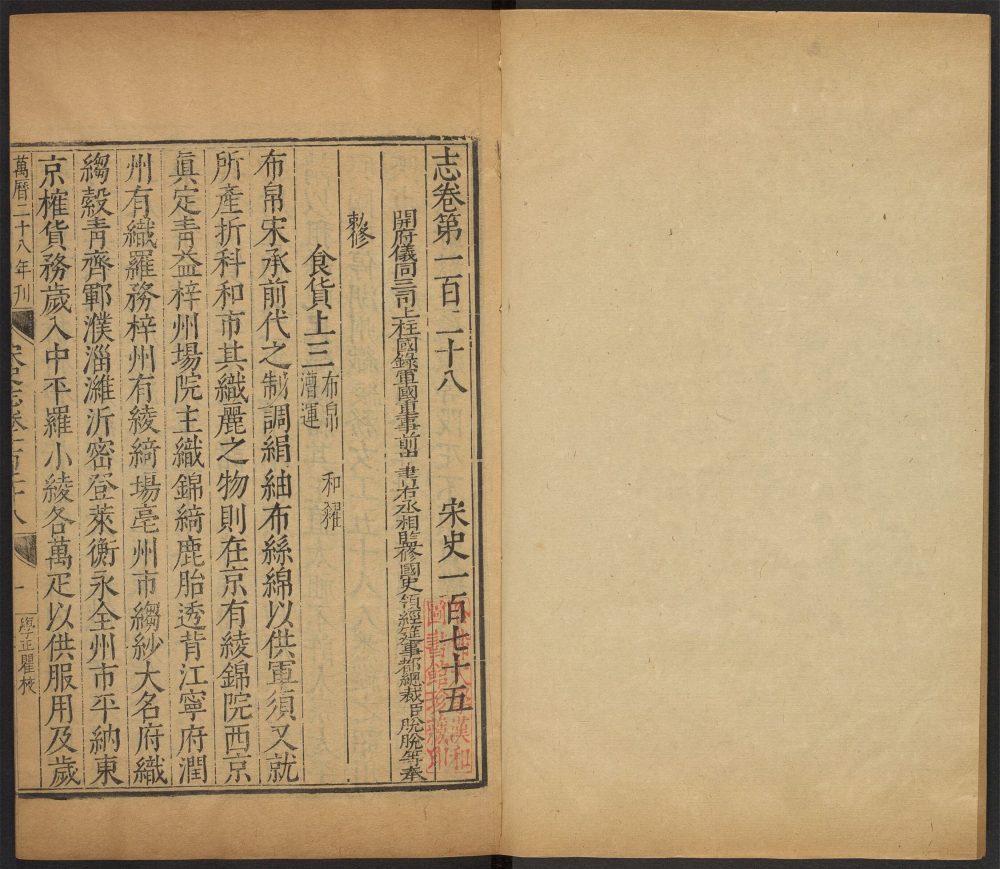 志卷第一百二十八 宋史一百七十五
開府儀同三司上柱國錄軍國重事前中書右丞相監修國史領經筵事都總裁臣脫脫等奉
敕修
食貨上三 布帛 和糴 漕運
布帛宋承前代之制調絹紬布絲綿以供軍須又就
所產折科和市其織麗之物則在京有綾錦院西京
真定青益梓州場院主織錦綺鹿胎透背江寧府潤
州有織羅務梓州有綾綺場亳州市縐紗大名府織
縐縠青齊鄆濮淄濰沂密登萊衡永全州市平絁東
京榷貨務歲入中平羅小綾各萬疋以供服用及歲
萬曆二十八年刊 宋史志卷一百二十八 一 學正瞿校
圖書館珍藏印
漢和